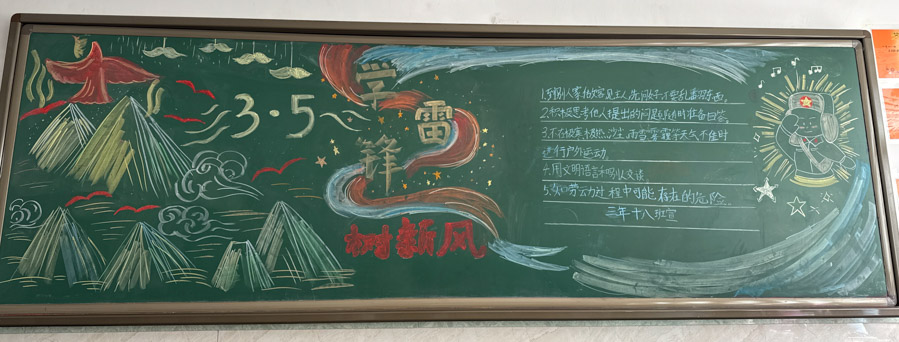 3·5
学雷锋
树新风
1.到别人家拍婚见主人先问好不要乱翻东西。
2.积极思考他人提出的问题随时准备回答。
3.不在极寒极热、沙尘、雨雪雾霾等天气不佳时
进行户外运动。
4.用文明语言和吸收交谈。
5.知劳动过程中可能存在的危险。
三年十八班宣